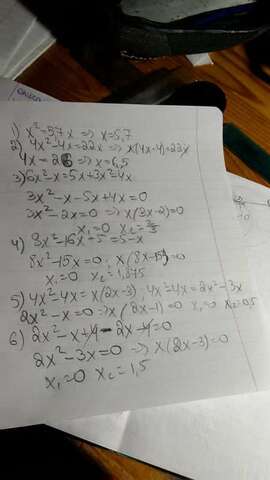 1) x²=5,7x ⇒ x=5,7
2) 4x²-4x=22x ⇒ x(4x-4)=22x
4x=26 ⇒ x=6,5
3) 6x²-x=5x+3x²-4x
3x²-x-5x+4x=0
3x²-2x=0 ⇒ x(3x-2)=0
x₁=0 x₂=2/3
4) 8x²-16x+5=5-x
8x²-15x=0 x(8x-15)=0
x₁=0 x₂=1,875
5) 4x²-4x=x(2x-3) 4x²-4x=2x²-3x
2x²-x=0 ⇒ x(2x-1)=0 x₁=0 x₂=0,5
6) 2x²-x+4-2x-4=0
2x²-3x=0 ⇒ x(2x-3)=0
x₁=0 x₂=1,5